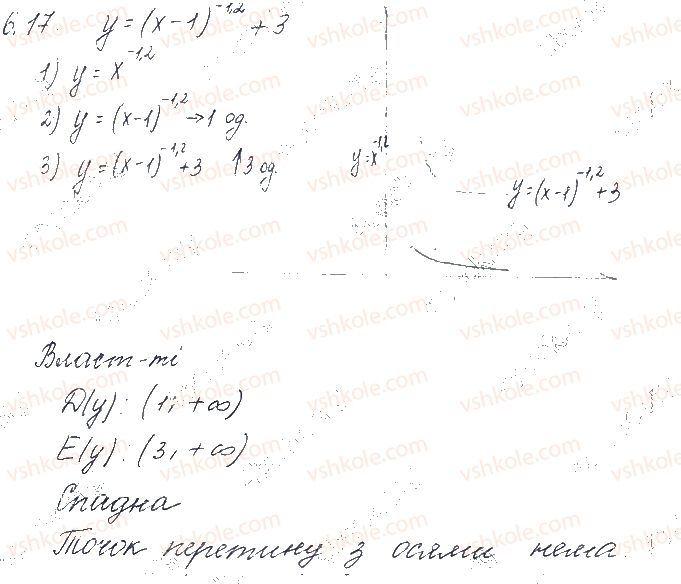 6.17. y = (x-1)^{-1,2} + 3
1) y = x^{-1,2}
2) y = (x-1)^{-1,2} → 1 од.
3) y = (x-1)^{-1,2} + 3 ↑3 од.
y = x^{-1,2}
y = (x-1)^{-1,2} + 3
Власт-ті
D(y): (1; +∞)
E(y): (3; +∞)
Спадна
Точок перетину з осями нема.
vshkole.com